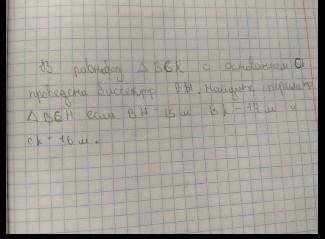 В равнобед △ BCK с основанием C
проведена биссектр BH. Найдите периметр
△ BCH если BH - 15 м BK - 17 м и
CK - 16 м.